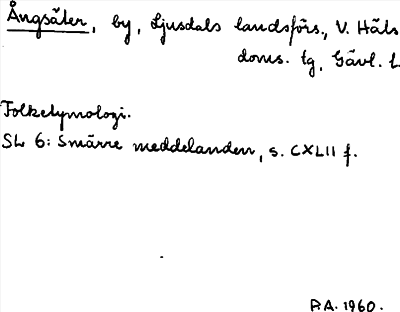 Ångsäter, by, Ljusdals landsförs., V. Häls
doms. tg, Gävl. L
Folketymologi.
SL 6: Smärre meddelanden, s. CXLII f.
P.A. 1960.